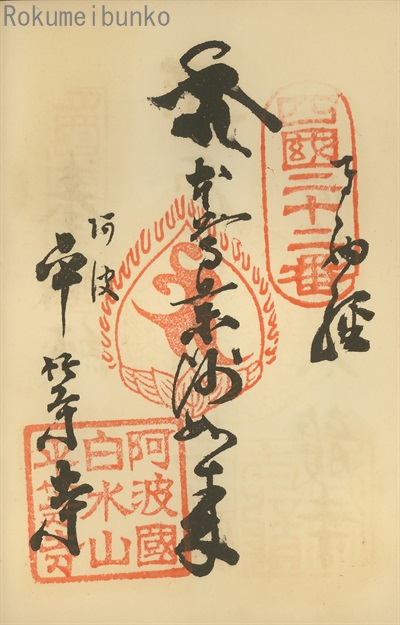 Rokumeibunko
四國二十二番
奉納経
本尊薬師如来
阿波
平等寺
阿波國
白水山
平等寺